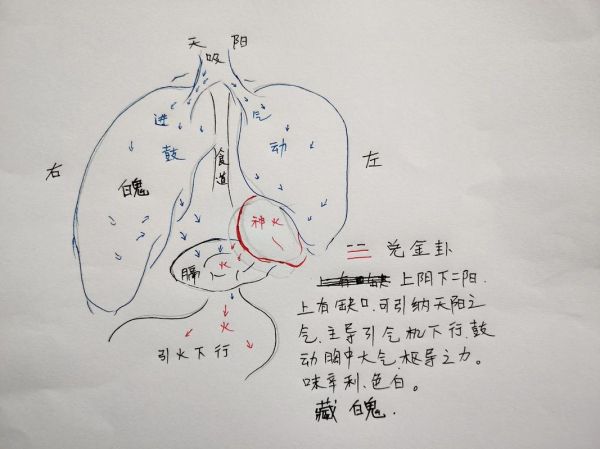 天 吸 阳
进 气
鼓 动
食道
右
左
魄
神火
膈 火
火
引火下行
兑金卦
上阴下二阳.
上有缺口,可引纳天阳之
气,主导引气机下行,鼓
动胸中大气,枢导之力。
味辛利、色白。
藏 魄.